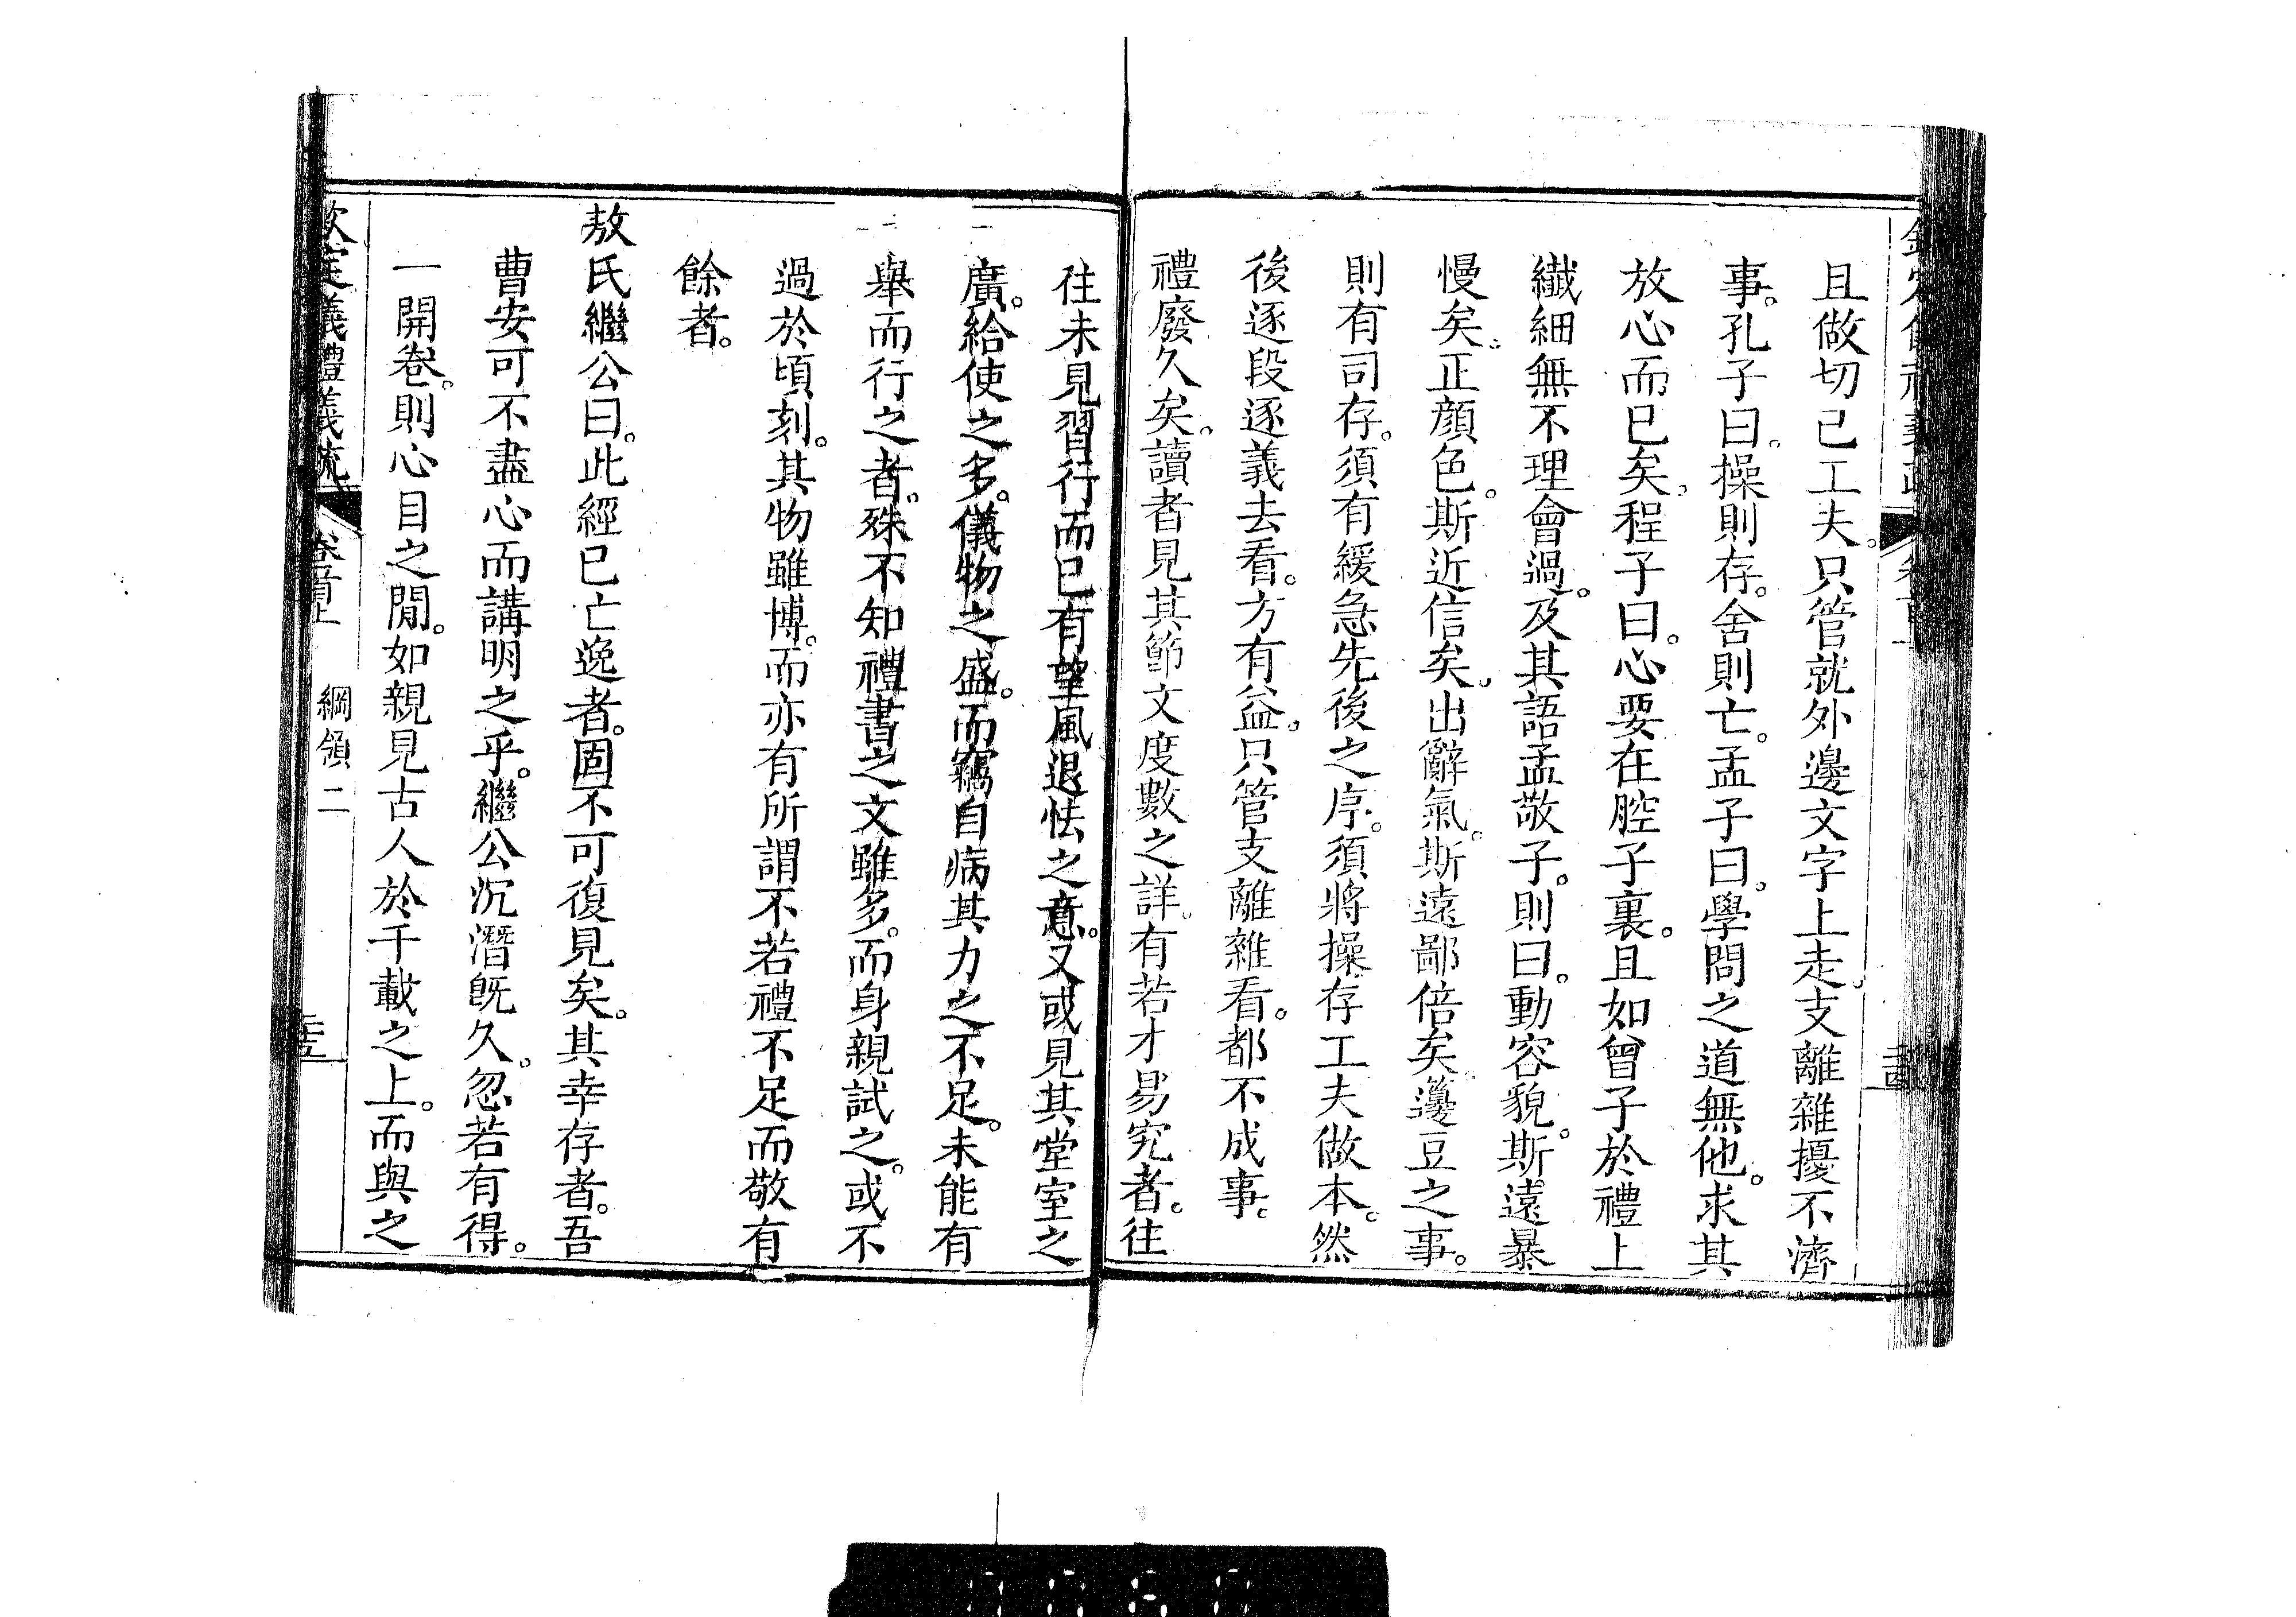 且做切己工夫。只管就外邊文字上走。支離雜擾不濟
事。孔子曰。操則存。舍則亡。孟子曰。學問之道無他。求其
放心而已矣。程子曰。心要在腔子裏。且如曾子於禮上
纖細無不理會過。及其語孟敬子。則曰。動容貌。斯遠暴
慢矣。正顏色。斯近信矣。出辭氣。斯遠鄙倍矣。籩豆之事。
則有司存。須有緩急先後之序。須將操存工夫做本。然
後逐段逐義去看。方有益。只管支離雜看。都不成事。
禮廢久矣。讀者見其節文度數之詳。有若才易究者。往
往未見習行而已有望風退怯之意。又或見其堂室之
廣。給使之多。儀物之盛。而竊自病其力之不足。未能有
舉而行之者。殊不知禮書之文雖多。而身親試之。或不
過於頃刻。其物雖博。而亦有所謂不若禮不足而敬有
餘者。
敖氏繼公曰。此經已亡逸者。固不可復見矣。其幸存者。吾
曹安可不盡心而講明之乎。繼公沉潛旣久。忽若有得。
一開卷。則心目之閒。如親見古人於千載之上。而與之
欽定儀禮義疏 卷首上 綱領二